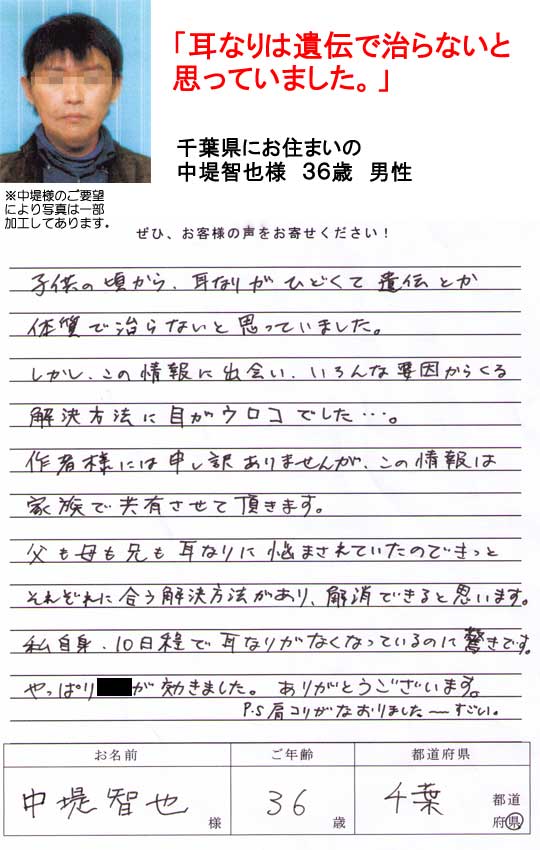 「耳なりは遺伝で治らないと
思っていました。」
千葉県にお住まいの
中堤智也様 36歳 男性
※中堤様のご要望
により写真は一部
加工してあります。
ぜひ、お客様の声をお寄せください！
子供の頃から、耳なりがひどくて遺伝とか
体質で治らないと思っていました。
しかし、この情報に出会い、いろんな要因からくる
解決方法に目がウロコでした…。
作者様には申し訳ありませんが、この情報は
家族で共有させて頂きます。
父も母も兄も耳なりに悩まされていたのできっと
それぞれに合う解決方法があり、解消できると思います。
私自身、10日程で耳なりがなくなっているのに驚きです。
やっぱり が効きました。ありがとうございます。
P.S 肩コリがなおりました〜すごい。
お名前 ご年齢 都道府県
中堤智也 様 36 歳 千葉 都道
府県